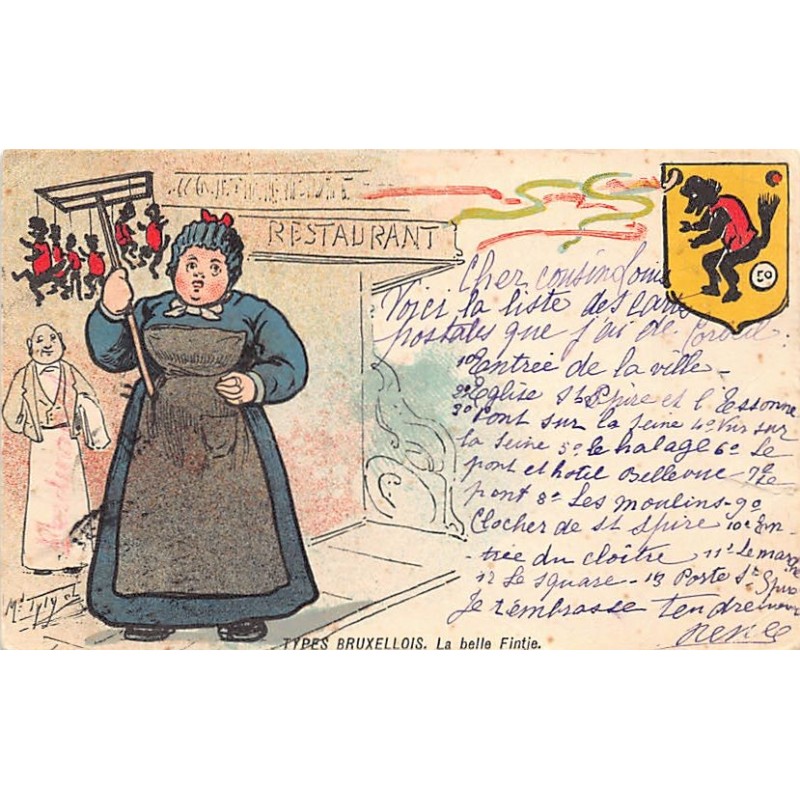 RESTAURANT
Cher cousin Louis
Voici la liste des cartes
postales que j'ai de Corbeil
1o Entrée de la ville -
2o Eglise St Spire et l'Essonne
3o Pont sur la Seine 4o Vue sur
la Seine 5o le halage 6o Le
pont et hotel Bellevue - 7o Le
pont 8o Les moulins - 9o
Clocher de St Spire 10o En-
trée du cloître 11o Le marché
12 Le square - 13 Porte St Spire
Je t'embrasse tendrement
René
50
TYPES BRUXELLOIS. La belle Fintje.